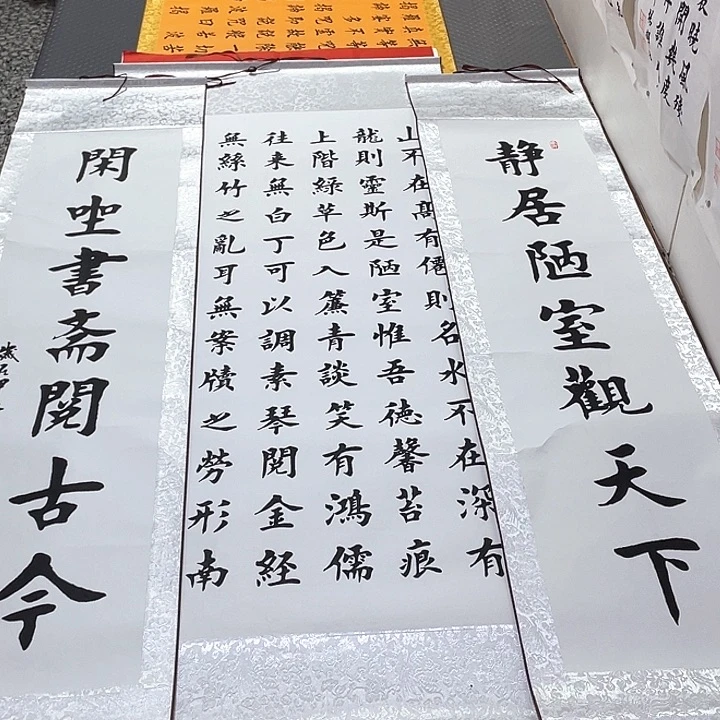 静居陋室觀天下
山不在髙有僊則名水不在深有
龍則靈斯是陋室惟吾徳馨苔痕
上階緑草色入簾青談笑有鴻儒
往来無白丁可以調素琴閲金経
無絲竹之亂耳無案牘之勞形南
閑坐書斎閲古今